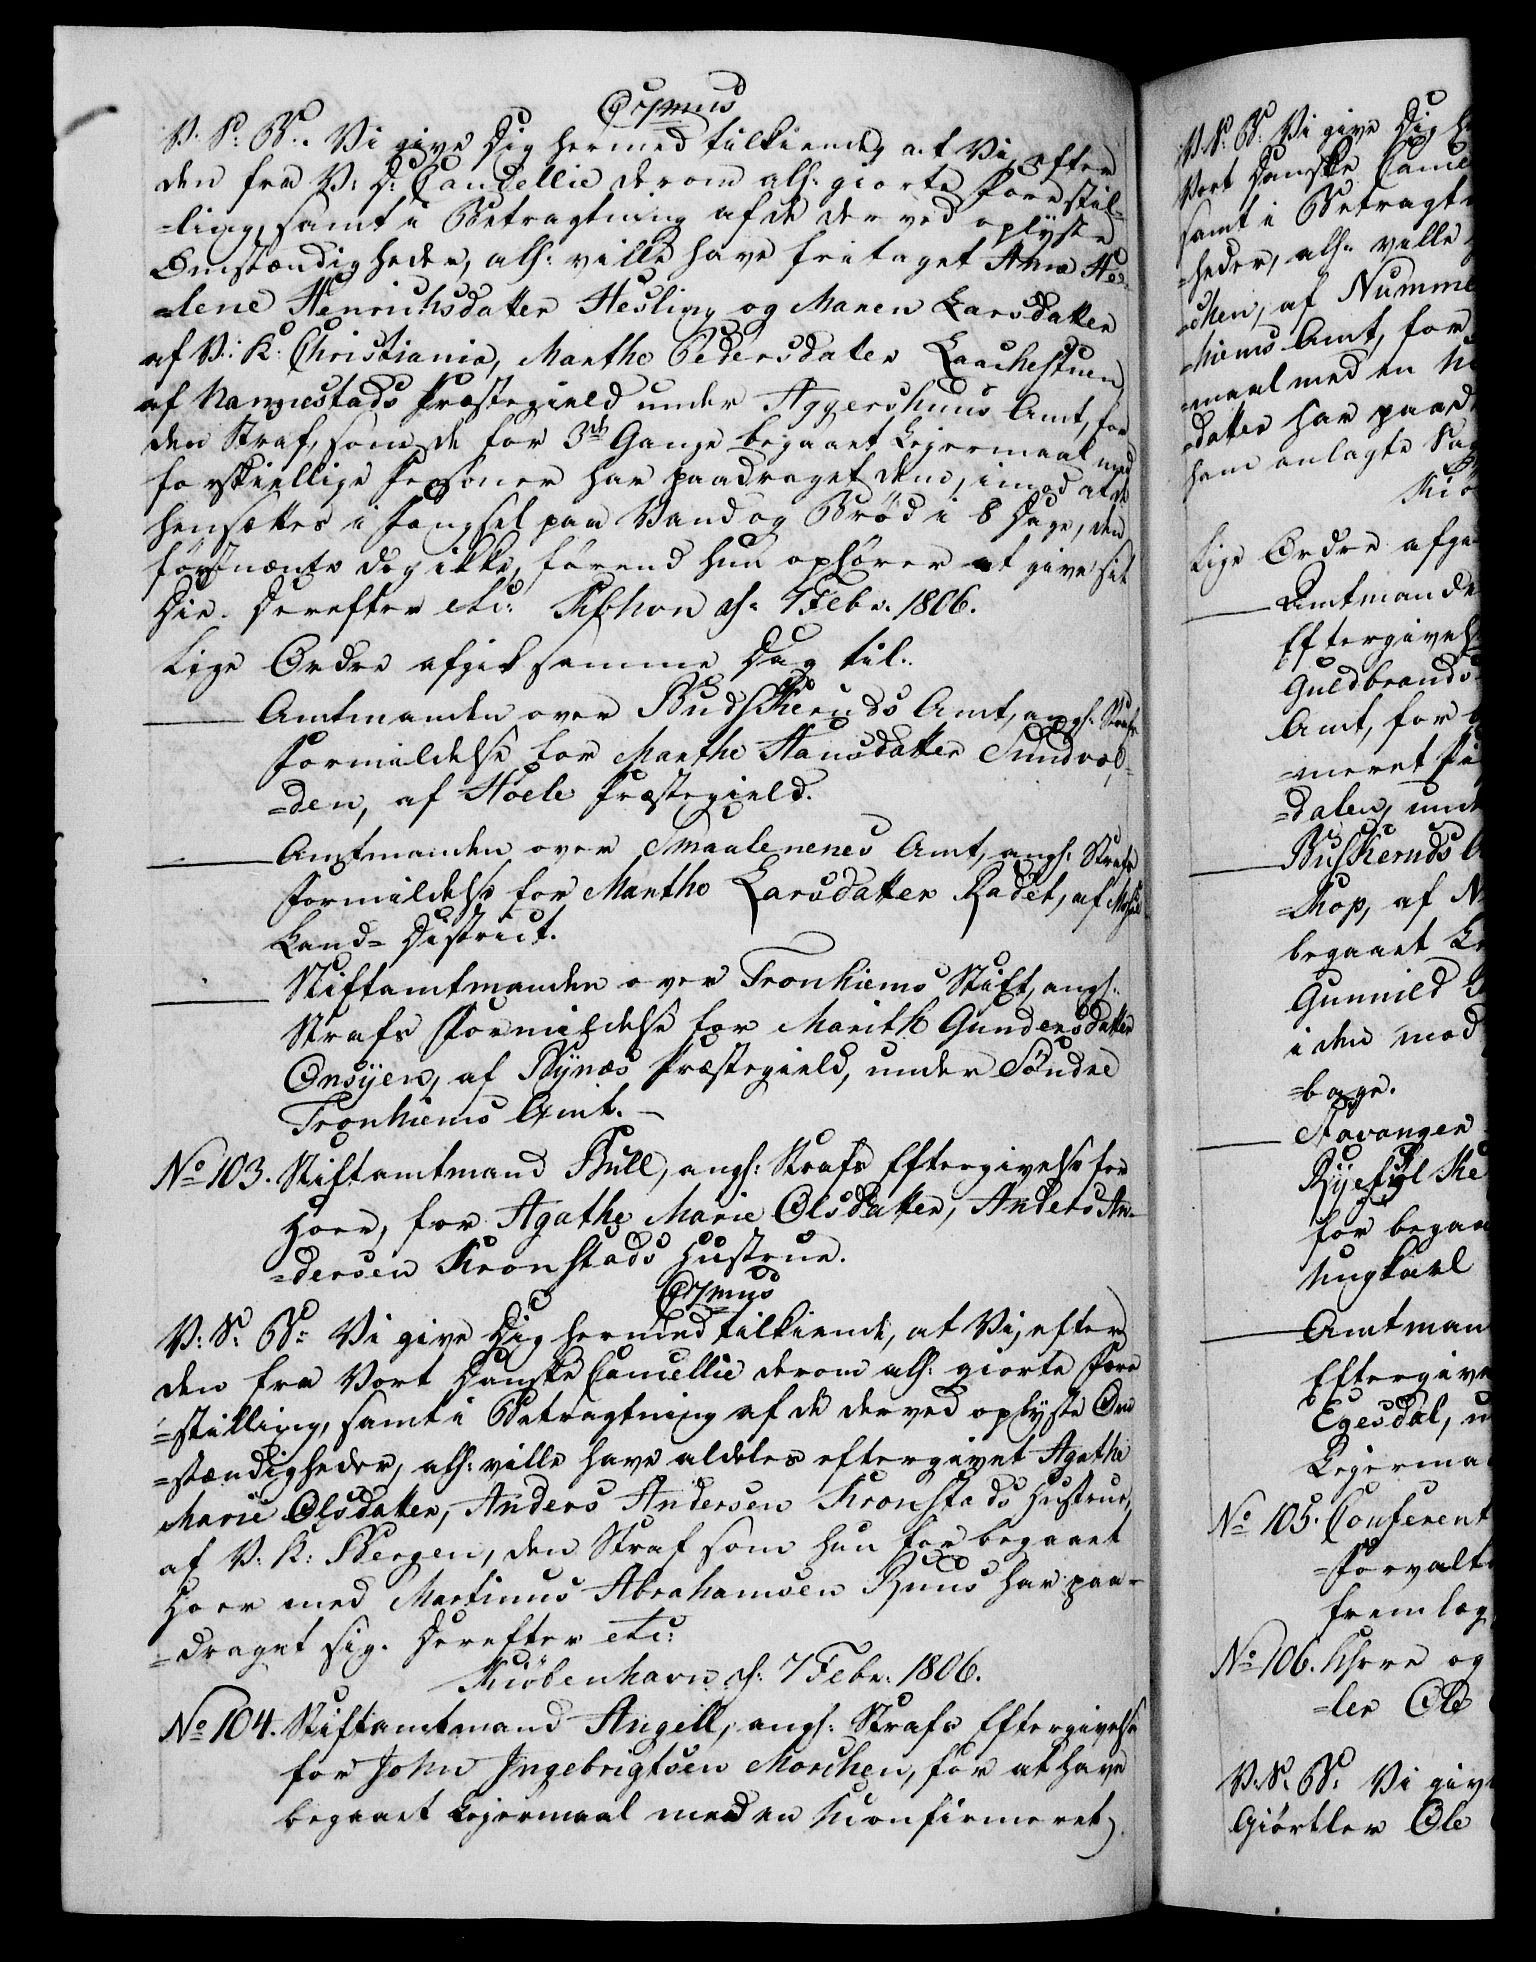 V: S: B: Vi give Dig hermed tilkiende, at Vi, efter
den fra V: D: Cancellie derom alh: giorte Forestil-
=ling, samt i Betragtning af de derved oplyste
Omstændigheder, alh: ville have fritaget Anne He-
=lene Henrichsdatter Hesling og Maren Larsdatter
af V: K: Christiania, Marthe Pedersdatter Laachestuen
af Nannestads Præstegield under Aggershuus Amt, for
den Straf, som de for 3de Gange begaaet Leiermaal med
forskiellige Personer har paadraget dem, imod at de
hensættes i Fængsel paa Vand og Brød i 8 Dage, den
førstnævnte dog ikke, førend hun ophører at give sit
Die. Derefter etc: Kbhvn d: 7 Febr: 1806.
Lige Ordre afgik samme Dag til:
Amtmanden over Budskeruds Amt, angl: Strafs
Formildelse for Marthe Hansdatter Sundvol-
=den, af Hoele Præstegield.
Amtmanden over Smaalenenes Amt, angl: Strafs
Formildelse for Marthe Larsdatter Rødet, af
Land=District.
Stiftamtmanden over Tronhiems Stift, angl:
Strafs Formildelse for Marith Gundersdatter
Onsøyen, af Bynæs Præstegield, under Søndre
Tronhiems Amt.
No 103. Stiftamtmand Bull, angl: Strafs Eftergivelse for
Hoer, for Agathe Marie Olsdatter, Anders An-
=dersen Kronstads Hustrue.
V: S: B: Vi give Dig hermed tilkiende, at Vi, efter
den fra Vort Danske Cancellie derom alh: giorte Fore
=stilling, samt i Betragtning af de derved oplyste Om
=stændigheder, alh: ville have aldeles eftergivet Agathe
Marie Olsdatter, Anders Andersen Kronstads Hustrue,
af V: K: Bergen, den Straf som hun for begaaet
Hoer med Martinus Abrahamsen Ruus har paa-
=draget sig. Derefter etc:
Kiöbenhavn d: 7 Febr: 1806.
No 104. Stiftamtmand Angell, angl: Strafs Eftergivelse
for John Ingebrigtsen Morchen, for at have
begaaet Leiermaal med en Uconfirmeret
V: S: B: Vi give Dig
Vort Danske Cance
samt i Betragt
=heder, alh: ville
=chen, af Numme
=hiems Amt, for
=maal med en
datter har paad
ham anlagte Sag
Kiø
Lige Ordre afg
Amtmande
Eftergivels
Guldbrands
Amt, for
=meret Pi
dalen, und
Buskeruds A
=Kop, af N
begaaet Le
Gunnild
i den mod
=bage.
Stavanger
Ryefyl
for begaa
Ungkarl
Amtman
Eftergive
Egesdal, u
Leierma
No 105. Conferent
=forvalt
fremlæg
No 106. Uhre og
=ler Ole
V: S: B: Vi giv
Giörtler Ole